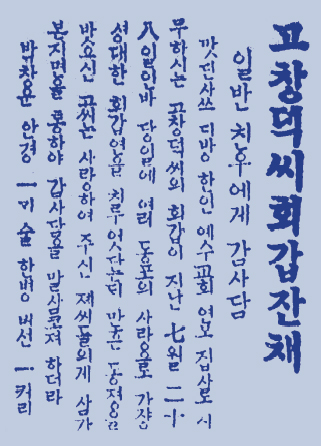 고창덕씨회갑잔채
일반친우에게 감사담
깟딘사쓰 디방 한인 예수교회 연보 집사로 시
무하시는 고창덕씨의 회갑이 지난 七월 二十
八일인바 당일에 여러 동포의 사랑으로 가장
성대한 회갑연을 치루엇다는데 만흔 동정을
밧으신 고씨는 사랑하여 주신 제씨들의게 삼가
본지면을 통하야 감사담을 말삼코져 하더라
박창운 안경 一미 술 한병 버선 一커리